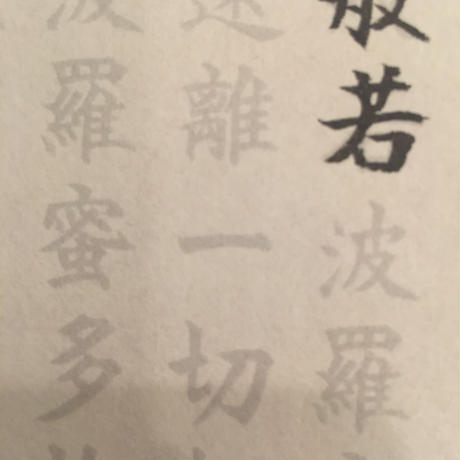 般若波羅
遠離一切
波羅蜜多